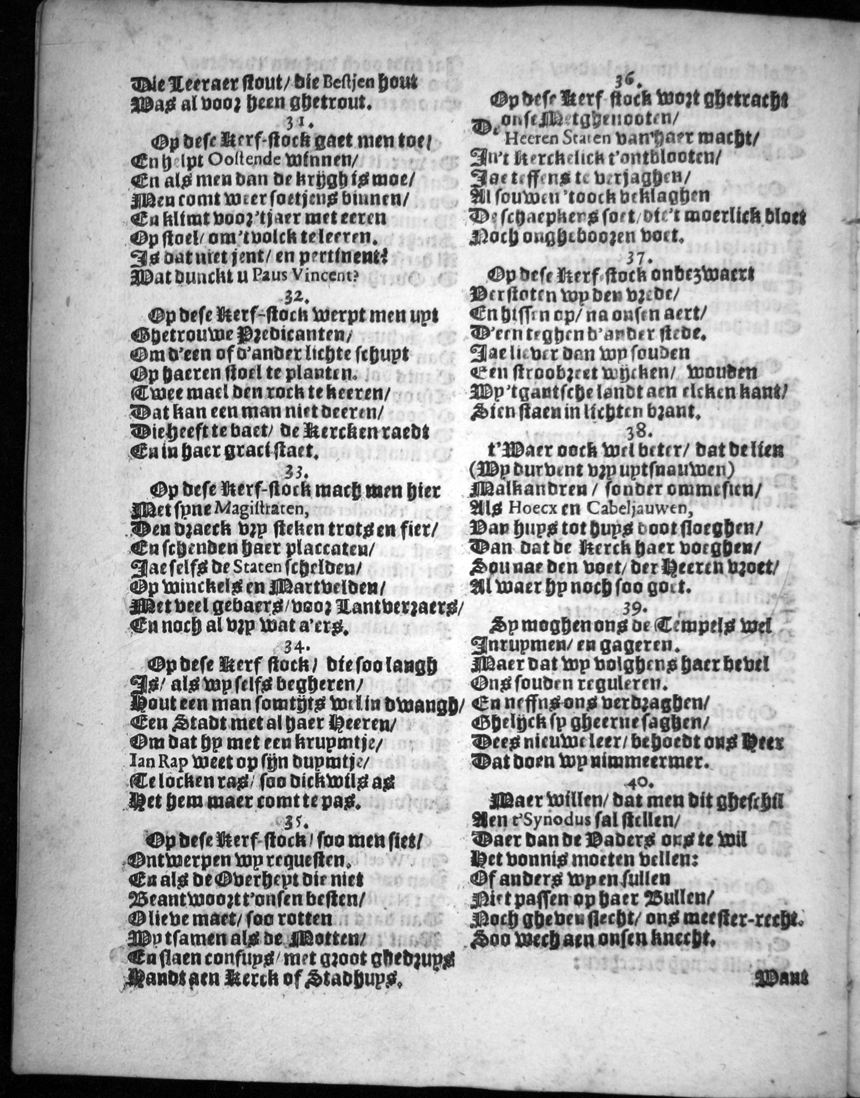 Die Leeraer stout/ die Bestjen hout
Was al voor heen ghetrout.
31.
Op dese Kerf-stock gaet men toe/
En helpt Oostende winnen/
En als men dan de krijgh is moe/
Men comt weer soetjens binnen/
En klimt voor 'tjaer met eeren
Op stoel/ om 'tvolck te leeren.
Is dat niet jent/ en pertinent?
Wat dunckt u Paus Vincent?
32.
Op dese Kerf-stock werpt men uyt
Ghetrouwe Predicanten/
Om d'een of d'ander lichte schuyt
Op haeren stoel te planten.
Twee mael den rock te keeren/
Dat kan een man niet deeren/
Die heeft te baet/ de Kercken raedt
En in haer graci staet.
33.
Op dese Kerf-stock mach men hier
Met syne Magistraten,
Den draeck vry steken trots en fier/
En schenden haer placcaten/
Jae selfs de Staten schelden/
Op winckels en Martvelden/
Met veel gebaers/ voor Lantverraers/
En noch al vry wat a'ers.
34.
Op dese Kerf stock/ die soo langh
Is/ als wy selfs begheren/
Hout een man somtijts wel in dwangh/
Een Stadt met al haer Heeren/
Om dat hy met een kruymtje/
Ian Rap weet op sijn duymtje/
Te locken ras/ soo dickwils as
Het hem maer comt te pas.
35.
Op dese Kerf-stock/ soo men siet/
Ontwerpen wy requesten.
En als de Overheyt die niet
Beantwoort t'onsen besten/
O lieve maet/ soo rotten
Wy tsamen als de Motten/
En slaen confuys/ met groot ghedruys
Handt aen Kerck of Stadhuys.
36.
Op dese Kerf-stock wort ghetracht
De onse Metghenooten/
Heeren Staten van 'haer macht/
In't Kerckelick t'ontblooten/
Jae teffens te verjaghen/
Al souwen 'toock beklaghen
De schaepkens soet/ die 't moerlick bloet
Noch ongheboozen voet.
37.
Op dese Kerf-stock onbezwaert
Verstoten wy den vrede/
En hissen op/ na onsen aert/
D'een teghen d'ander stede.
Jae liever dan wy souden
Een stroobreet wijcken/ wouden
Wy 'tgantsche landt aen elcken kant/
Sien staen in lichten brant.
38.
t'Waer oock wel beter/ dat de lien
(Wy durvent vry uytsnauwen)
Malkandren/ sonder ommesien/
Als Hoecx en Cabeljauwen,
Van huys tot huys doot sloeghen/
Dan dat de Kerck haer voeghen/
Sou nae den voet/ der Heeren vroet/
Al waer hy noch soo goet.
39.
Sy moghen ons de Tempels wel
Inruymen/ en gageren.
Maer dat wy volghens haer bevel
Ons souden reguleren.
En neffns ons verdraghen/
Ghelijck sy gheerne saghen/
Dees nieuwe leer/ behoedt ons Heer
Dat doen wy nimmeermer.
40.
Maer willen/ dat men dit gheschil
Aen t'Synodus sal stellen/
Daer dan de Vaders ons te wil
Het vonnis moeten vellen:
Of anders wy en sullen
Niet passen op haer Bullen/
Noch gheven slecht/ ons meester-recht.
Soo wech aen onsen knecht.
Want